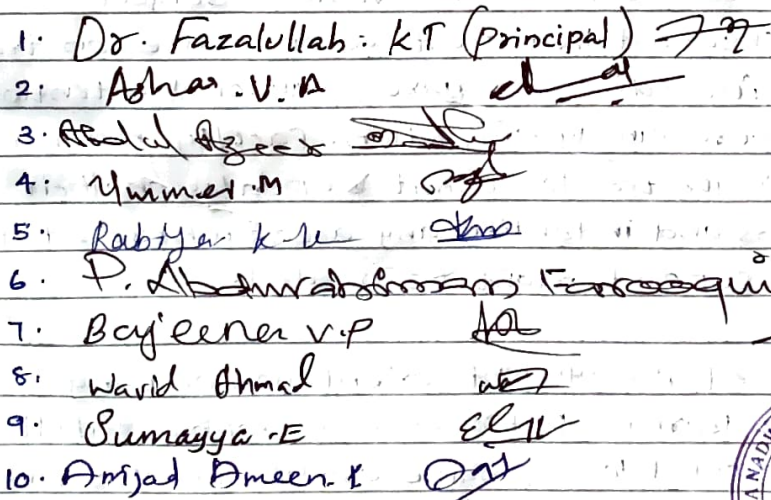 1. Dr. Fazalullah. KT (Principal)
2. Ashar. V. A
3. Abdul Azeez
4. Ummer. M
5. Rabiya k
6. P. Abdurahiman Farooqui
7. Bajeena V.P
8. Warid Ahmad
9. Sumayya. E
10. Amjad Ameen. K
NADU